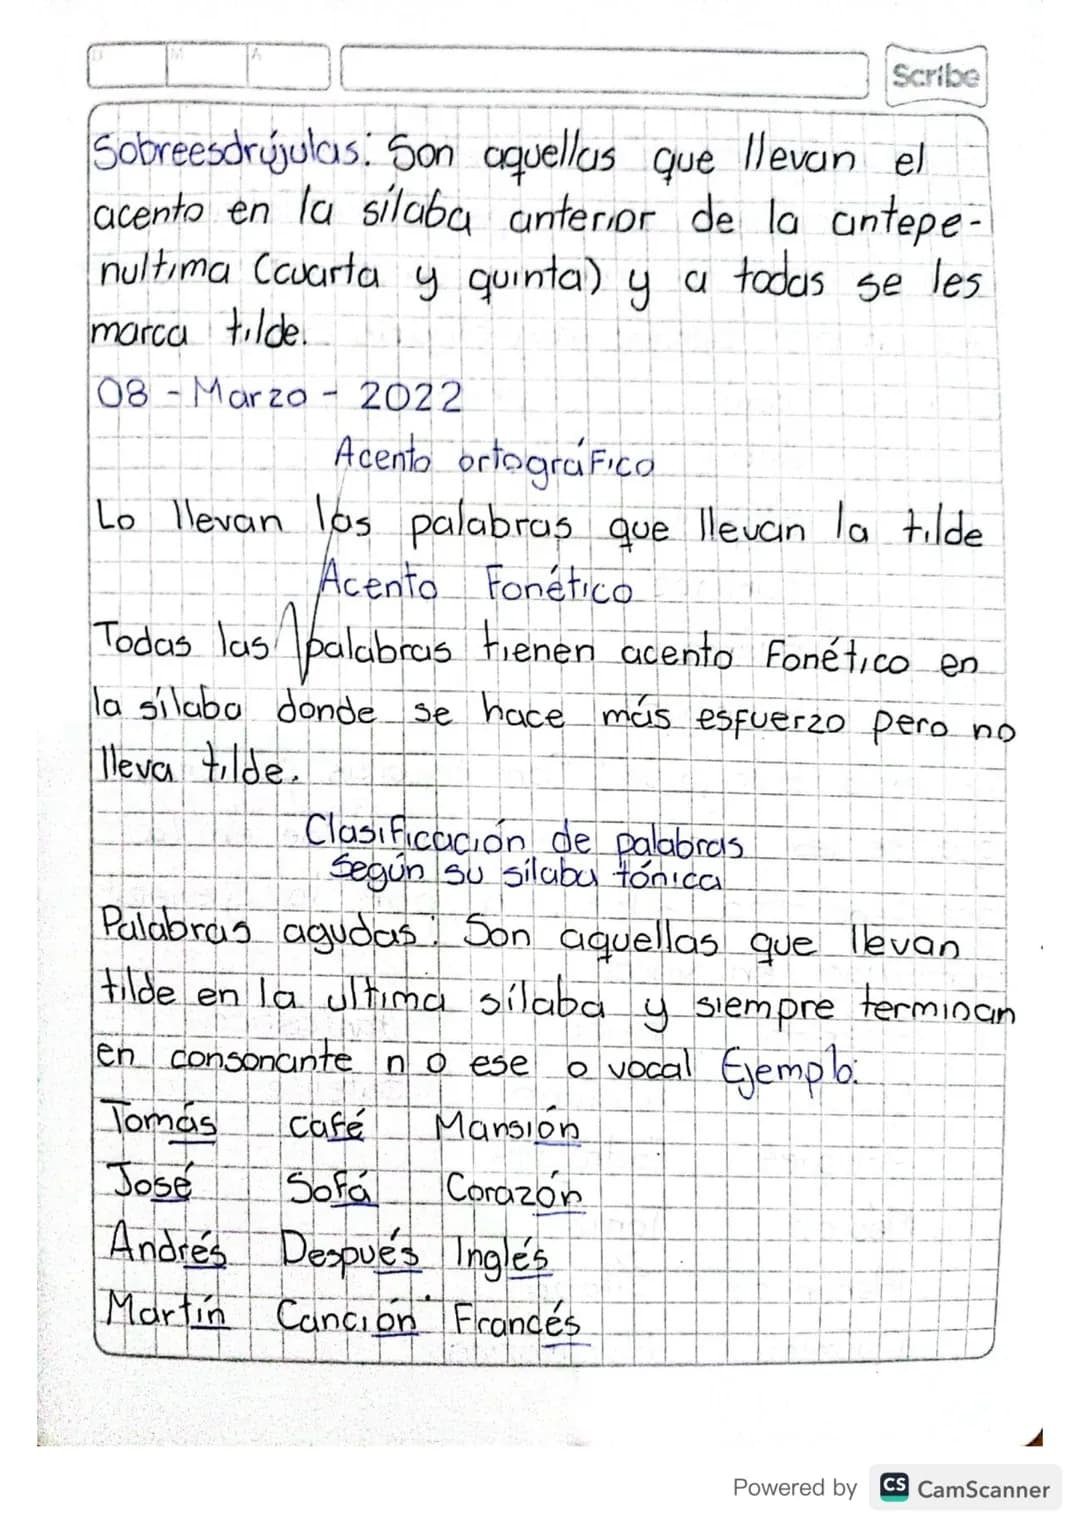 D M A
Scribe
Sobreesdrújulas: Son aquellas que llevan el
acento en la sílaba anterior de la antepe-
nultima (cuarta y quinta) y a todas se les
marca tilde.
08 - Marzo - 2022
Acento ortográfico
Lo llevan las palabras que llevan la tilde
Acento Fonético
Todas las palabras tienen acento Fonético en
la sílaba donde se hace más esfuerzo pero no
lleva tilde.
Clasificación de palabras
Según su sílaba tónica
Palabras agudas: Son aquellas que llevan
tilde en la ultima sílaba y siempre terminan
en consonante n o ese o vocal Ejemplo:
Tomás café Mansión
José Sofá Corazón
Andrés Después Inglés
Martín Canción Francés
Powered by CS CamScanner